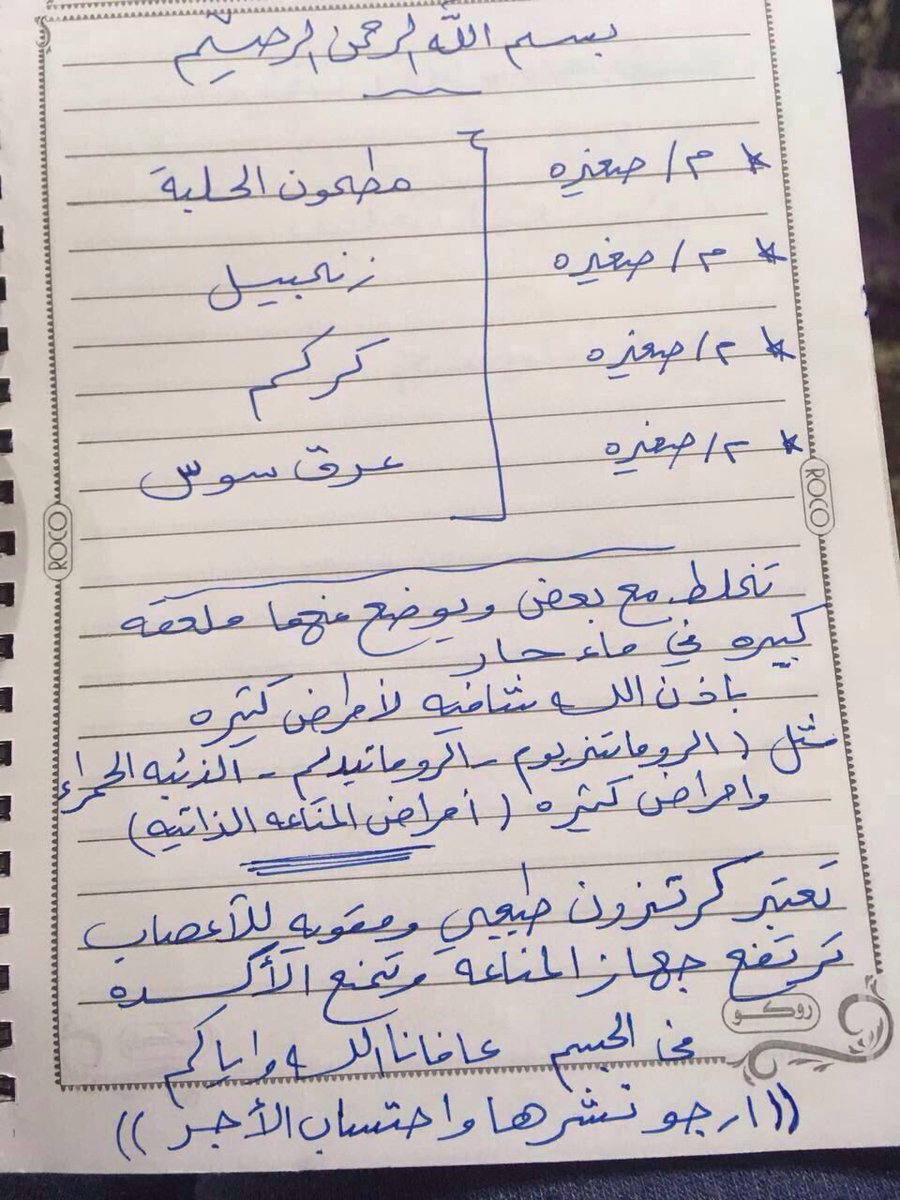 بسم الله الرحمن الرحيم
* م/ صغيره مطحون الحلبة
* م/ صغيره زنجبيل
* م/ صغيره كركم
* م/ صغيره عرق سوس
ROCO
ROCO
تخلط مع بعض ويوضع منهما ملعقه
كبيره في ماء حار
باذن الله شافيه لأمراض كثيره
مثل (الروماتيزيوم - الروماتيدم - الذئبه الحمراء
وامراض كثيره (أمراض المناعه الذاتيه)
تعتبر كرتزون طبيعي ومقويه للأعصاب
ترتفع جهاز المناعه وتمنع الأكسده
روكو
في الجسم عافانا الله واياكم
((ارجو نشرها واحتساب الأجر))